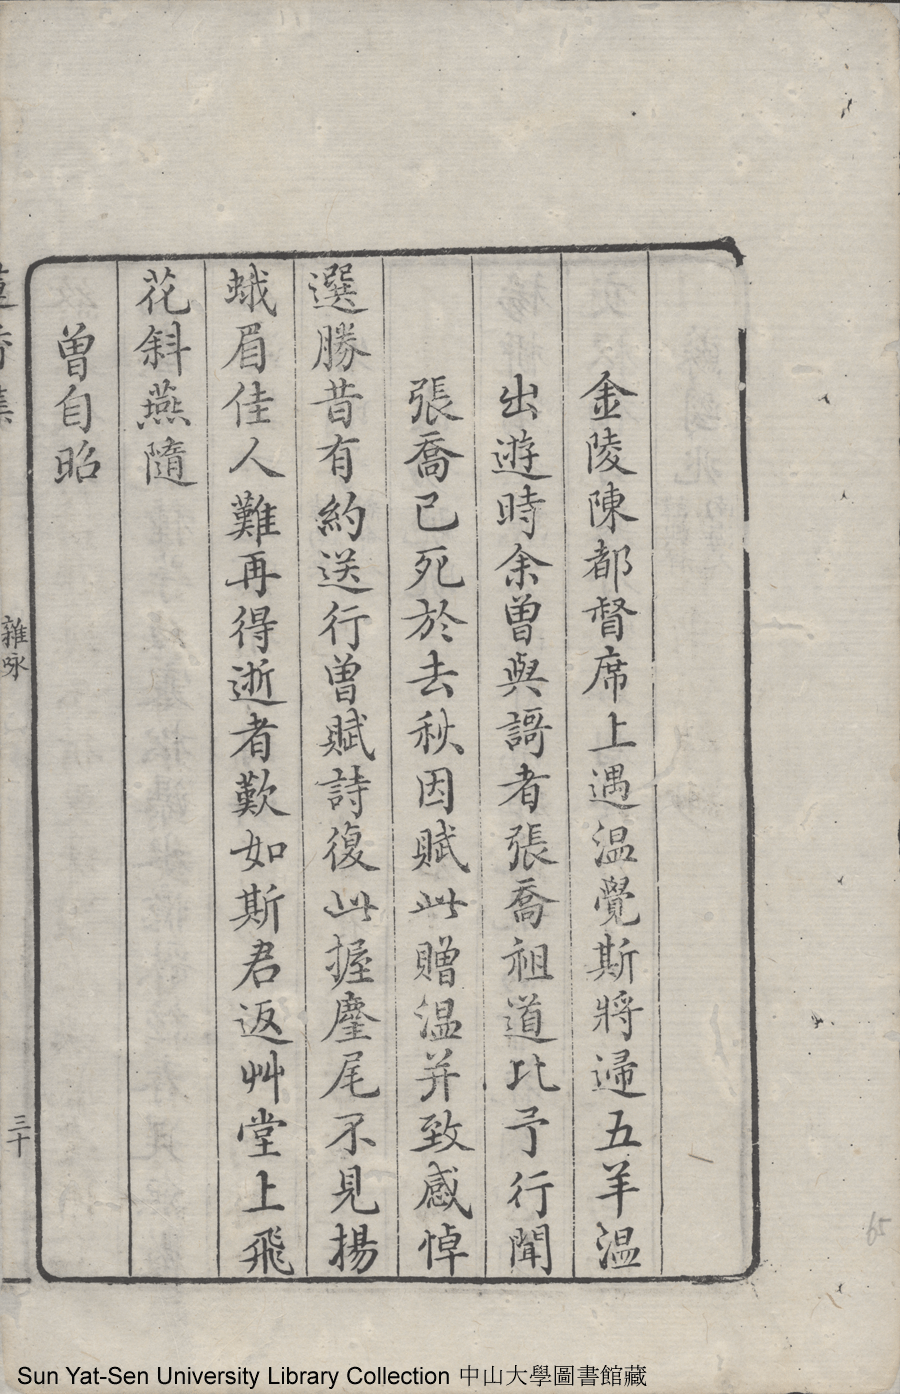 金陵陳都督席上遇温覺斯將歸五羊温
出遊時余曾與謌者張喬祖道比予行聞
張喬已死於去秋因賦此贈温并致感悼
選勝昔有約送行曾賦詩復此握麈尾不見揚
蛾眉佳人難再得逝者歎如斯君返艸堂上飛
花斜燕隨
曾自昭
蓮香集
雜咏
三十
65
Sun Yat-Sen University Library Collection 中山大學圖書館藏